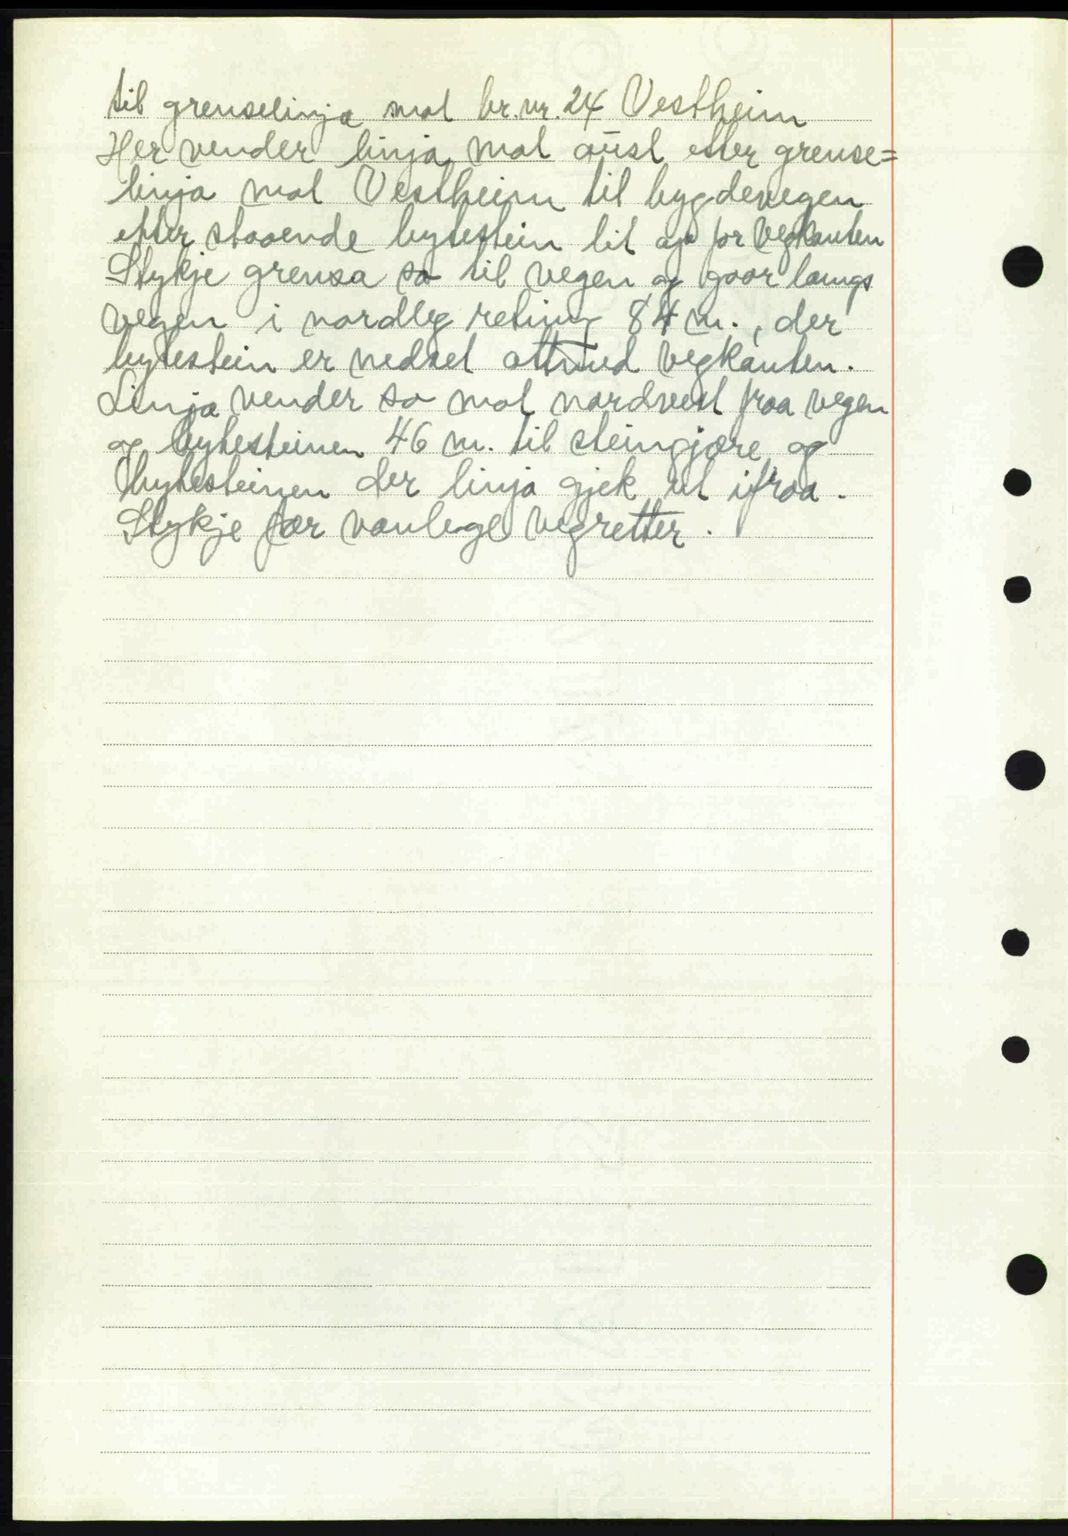 til grenselinja mot br.nr. 24 Vestheim
Her vender linja mot aust etter grense=
linja mot Vestheim til bygdevegen
etter staaende bytestein lit op for vegkanten
Stykje grensa so til vegen og gaar langs
vegen i nordleg retning 84 m., der
bytestein er nedset attmed vegkanten.
Linja vender so mot nordvest fraa vegen
og bytesteinen 46 m. til steingjære og
bytesteinen der linja gjek ut ifraa.
Stykje fær vanlege vegretter.